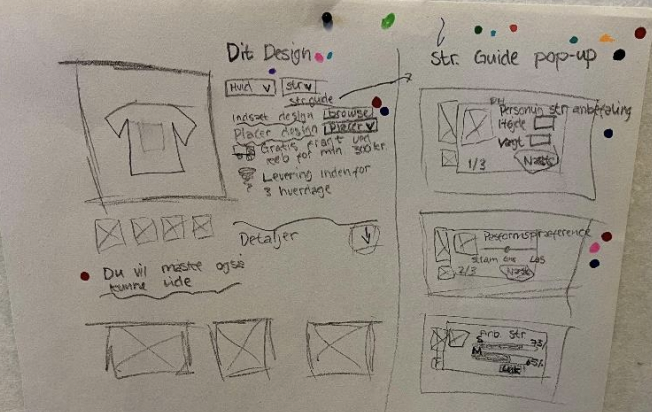 Dit Design
Hvid
str
str.guide
Indsæt design browse
Placer design Placer
Gratis fragt ved
køb for min 300 kr
Levering inden for
3 hverdage
Detaljer
Du vil måske også
kunne lide
str. Guide pop-up
Personlig str anbefaling
Højde
Vægt
1/3 Næste
Pasformspræference
stram løs
2/3 Næste
Anb. str
S
M